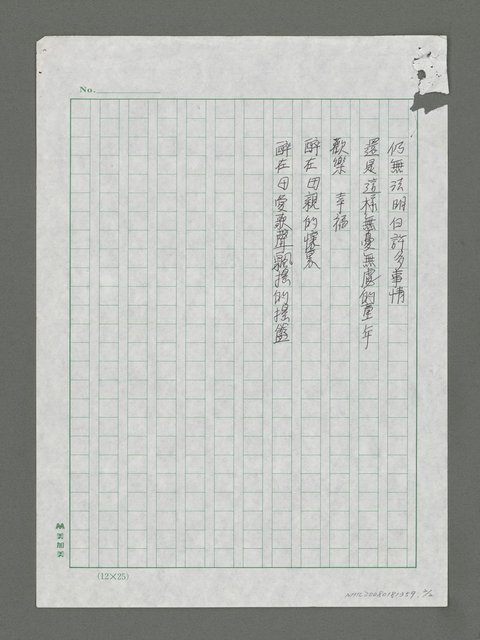 No.
仍無法明白許多事情
還是這樣無憂無慮的童年
歡樂　幸福
醉在母親的懷裏
醉在母愛歌聲飄搖的搖籃
美加美
(12×25)